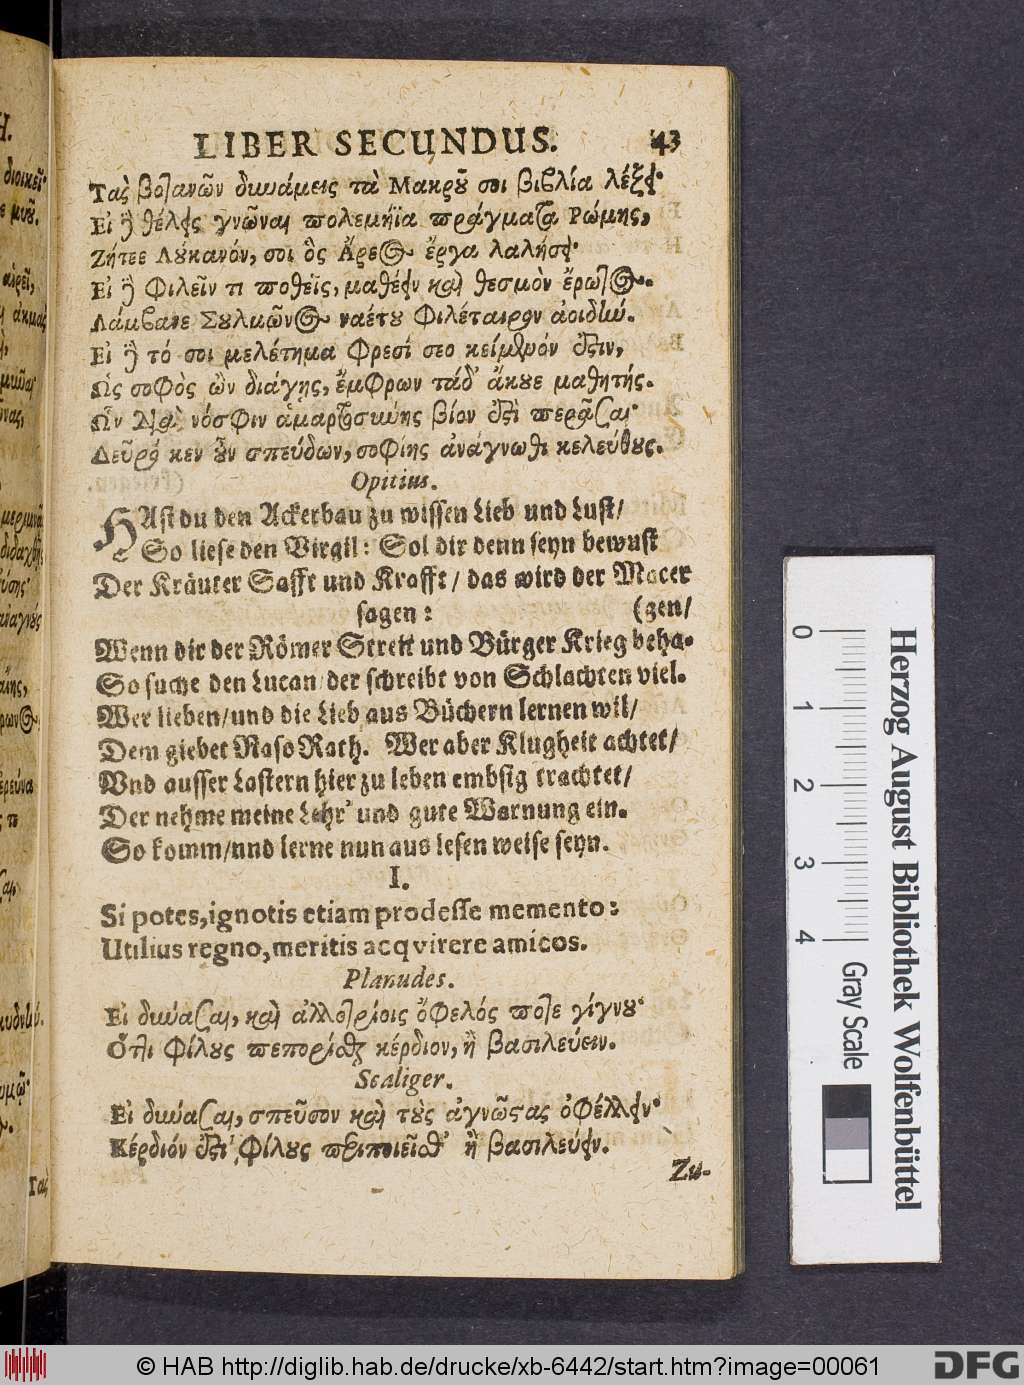 LIBER SECUNDUS. 43
Τὰς βοτανῶν δυνάμεις τὰ Μακροῦ σοι βιβλία λέξει·
Εἰ δὲ θέλεις γνῶναι πολεμήϊα πράγματα Ῥώμης,
Ζήτεε Λύκανόν, σοι ὃς Ἄρεος ἔργα λαλήσει·
Εἰ δὲ Φιλεῖν τι ποθεῖς, μαθέειν καὶ θεσμὸν ἔρωτος.
Λάμβανε Σουλμῶνος ναέτου Φιλέταιρον ἀοιδήν.
Εἰ δὲ τό σοι μελέτημα Φρεσί σεο κείμενόν ἐστιν,
Ὡς σοφὸς ὢν διάγῃς, ἔμφρων τάδ' ἄκουε μαθητής.
Ὧν διαὶ νόσφιν ἁμαρτοσύνης βίον ἐστὶ περᾶσαι·
Δεῦρό κεν οὖν σπεύδων, σοφίης ἀνάγνωθι κελεύθους.
Opitius.
HAst du den Ackerbau zu wissen Lieb und Lust/
So liese den Virgil: Sol dir denn seyn bewust
Der Kräuter Safft und Krafft/ das wird der Macer
sagen: (gen/
Wenn dir der Römer Streit und Bürger Krieg beha-
So suche den Lucan/ der schreibt von Schlachten viel.
Wer lieben/und die Lieb aus Büchern lernen wil/
Dem giebet Naso Rath. Wer aber Klugheit achtet/
Vnd ausser Lastern hier zu leben embsig trachtet/
Der nehme meine Lehr' und gute Warnung ein.
So komm/und lerne nun aus lesen weise seyn.
I.
Si potes, ignotis etiam prodesse memento:
Utilius regno, meritis acqvirere amicos.
Planudes.
Εἰ δύνασαι, καὶ ἀλλοτρίοις ὄφελός ποτε γίγνου·
Ὅττι Φίλους πεπορίσθαι κέρδιον, ἢ βασιλεύειν.
Scaliger.
Εἰ δύνασαι, σπεῦσον καὶ τοὺς ἀγνῶτας ὀφέλλειν·
Κέρδιόν ἐστι Φίλους περιποιεῖσθ' ἢ βασιλεύειν.
Zu-
Τας
0 1 2 3 4
Gray Scale
Herzog August Bibliothek Wolfenbüttel
© HAB http://diglib.hab.de/drucke/xb-6442/start.htm?image=00061
DFG